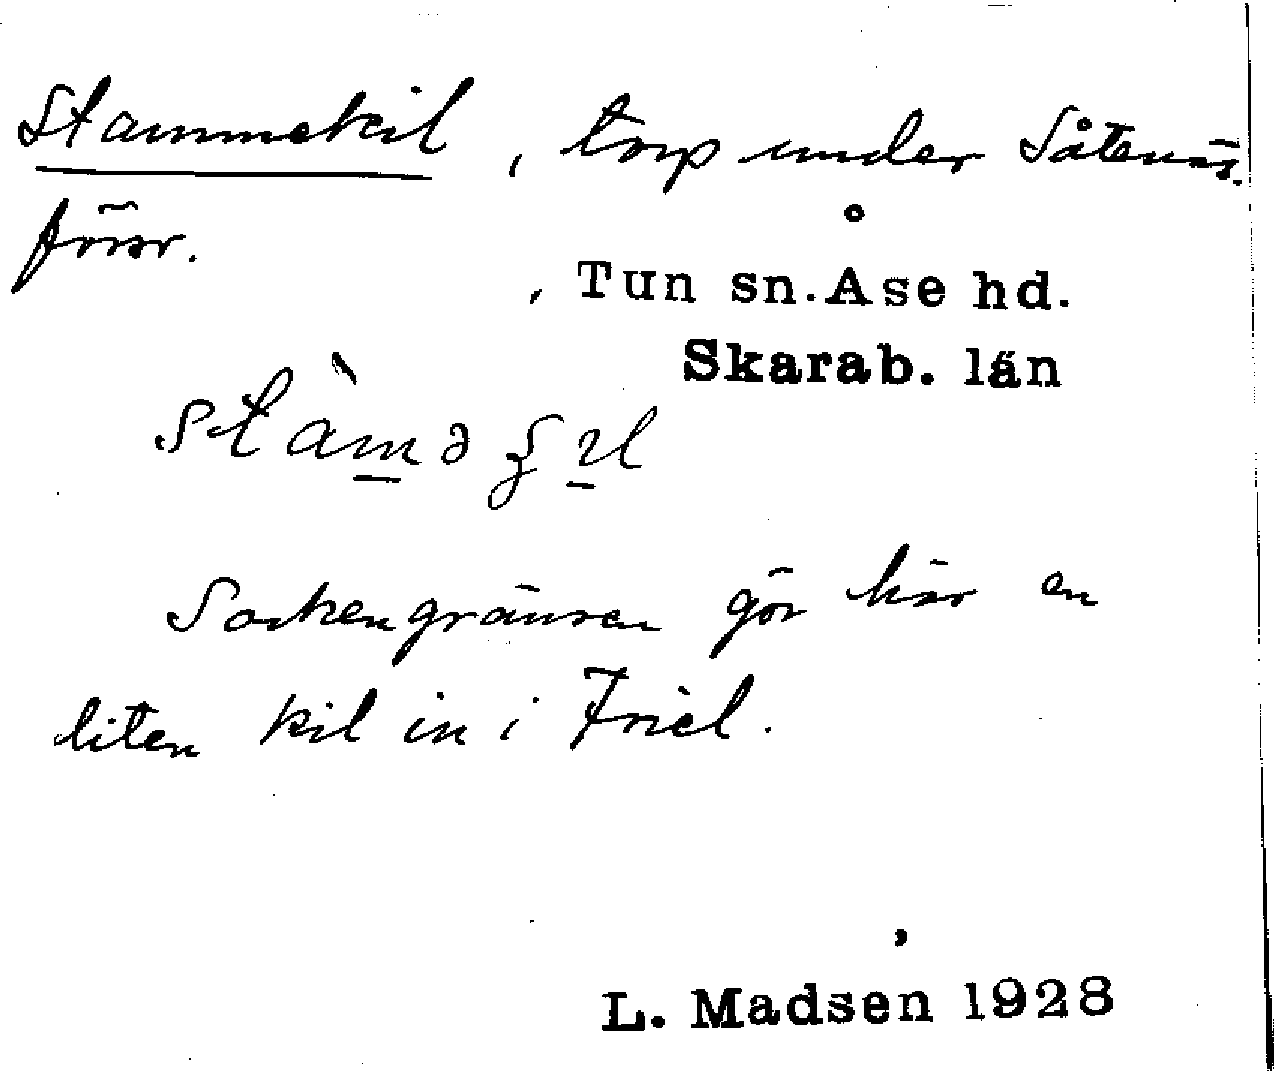 Stammekil, torp under Såtenäs.
förr.
, Tun sn. Åse hd.
Skarab. län
Sockengränsen gör här en
liten kil in i Friel.
L. Madsen 1928